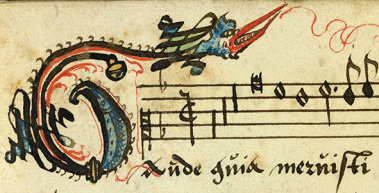 Gaude quia meruisti